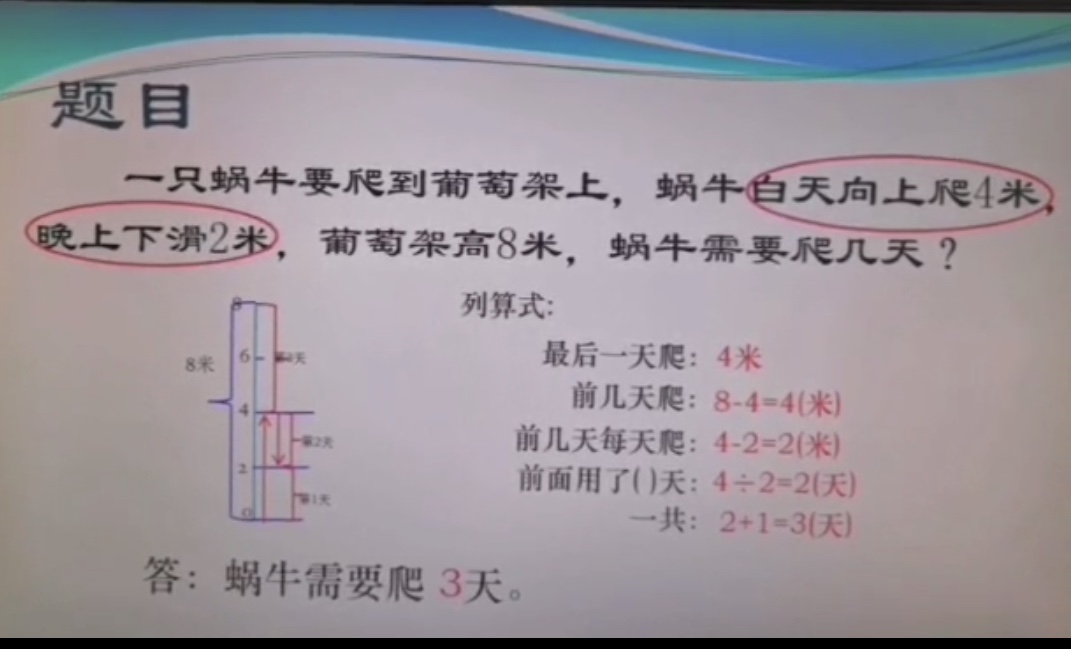 题目
一只蜗牛要爬到葡萄架上，蜗牛白天向上爬4米，
晚上下滑2米，葡萄架高8米，蜗牛需要爬几天？
列算式：
8
8米
6
第3天
4
第2天
2
第1天
0
最后一天爬：4米
前几天爬：8-4=4(米)
前几天每天爬：4-2=2(米)
前面用了( )天：4÷2=2(天)
一共：2+1=3(天)
答：蜗牛需要爬 3天。